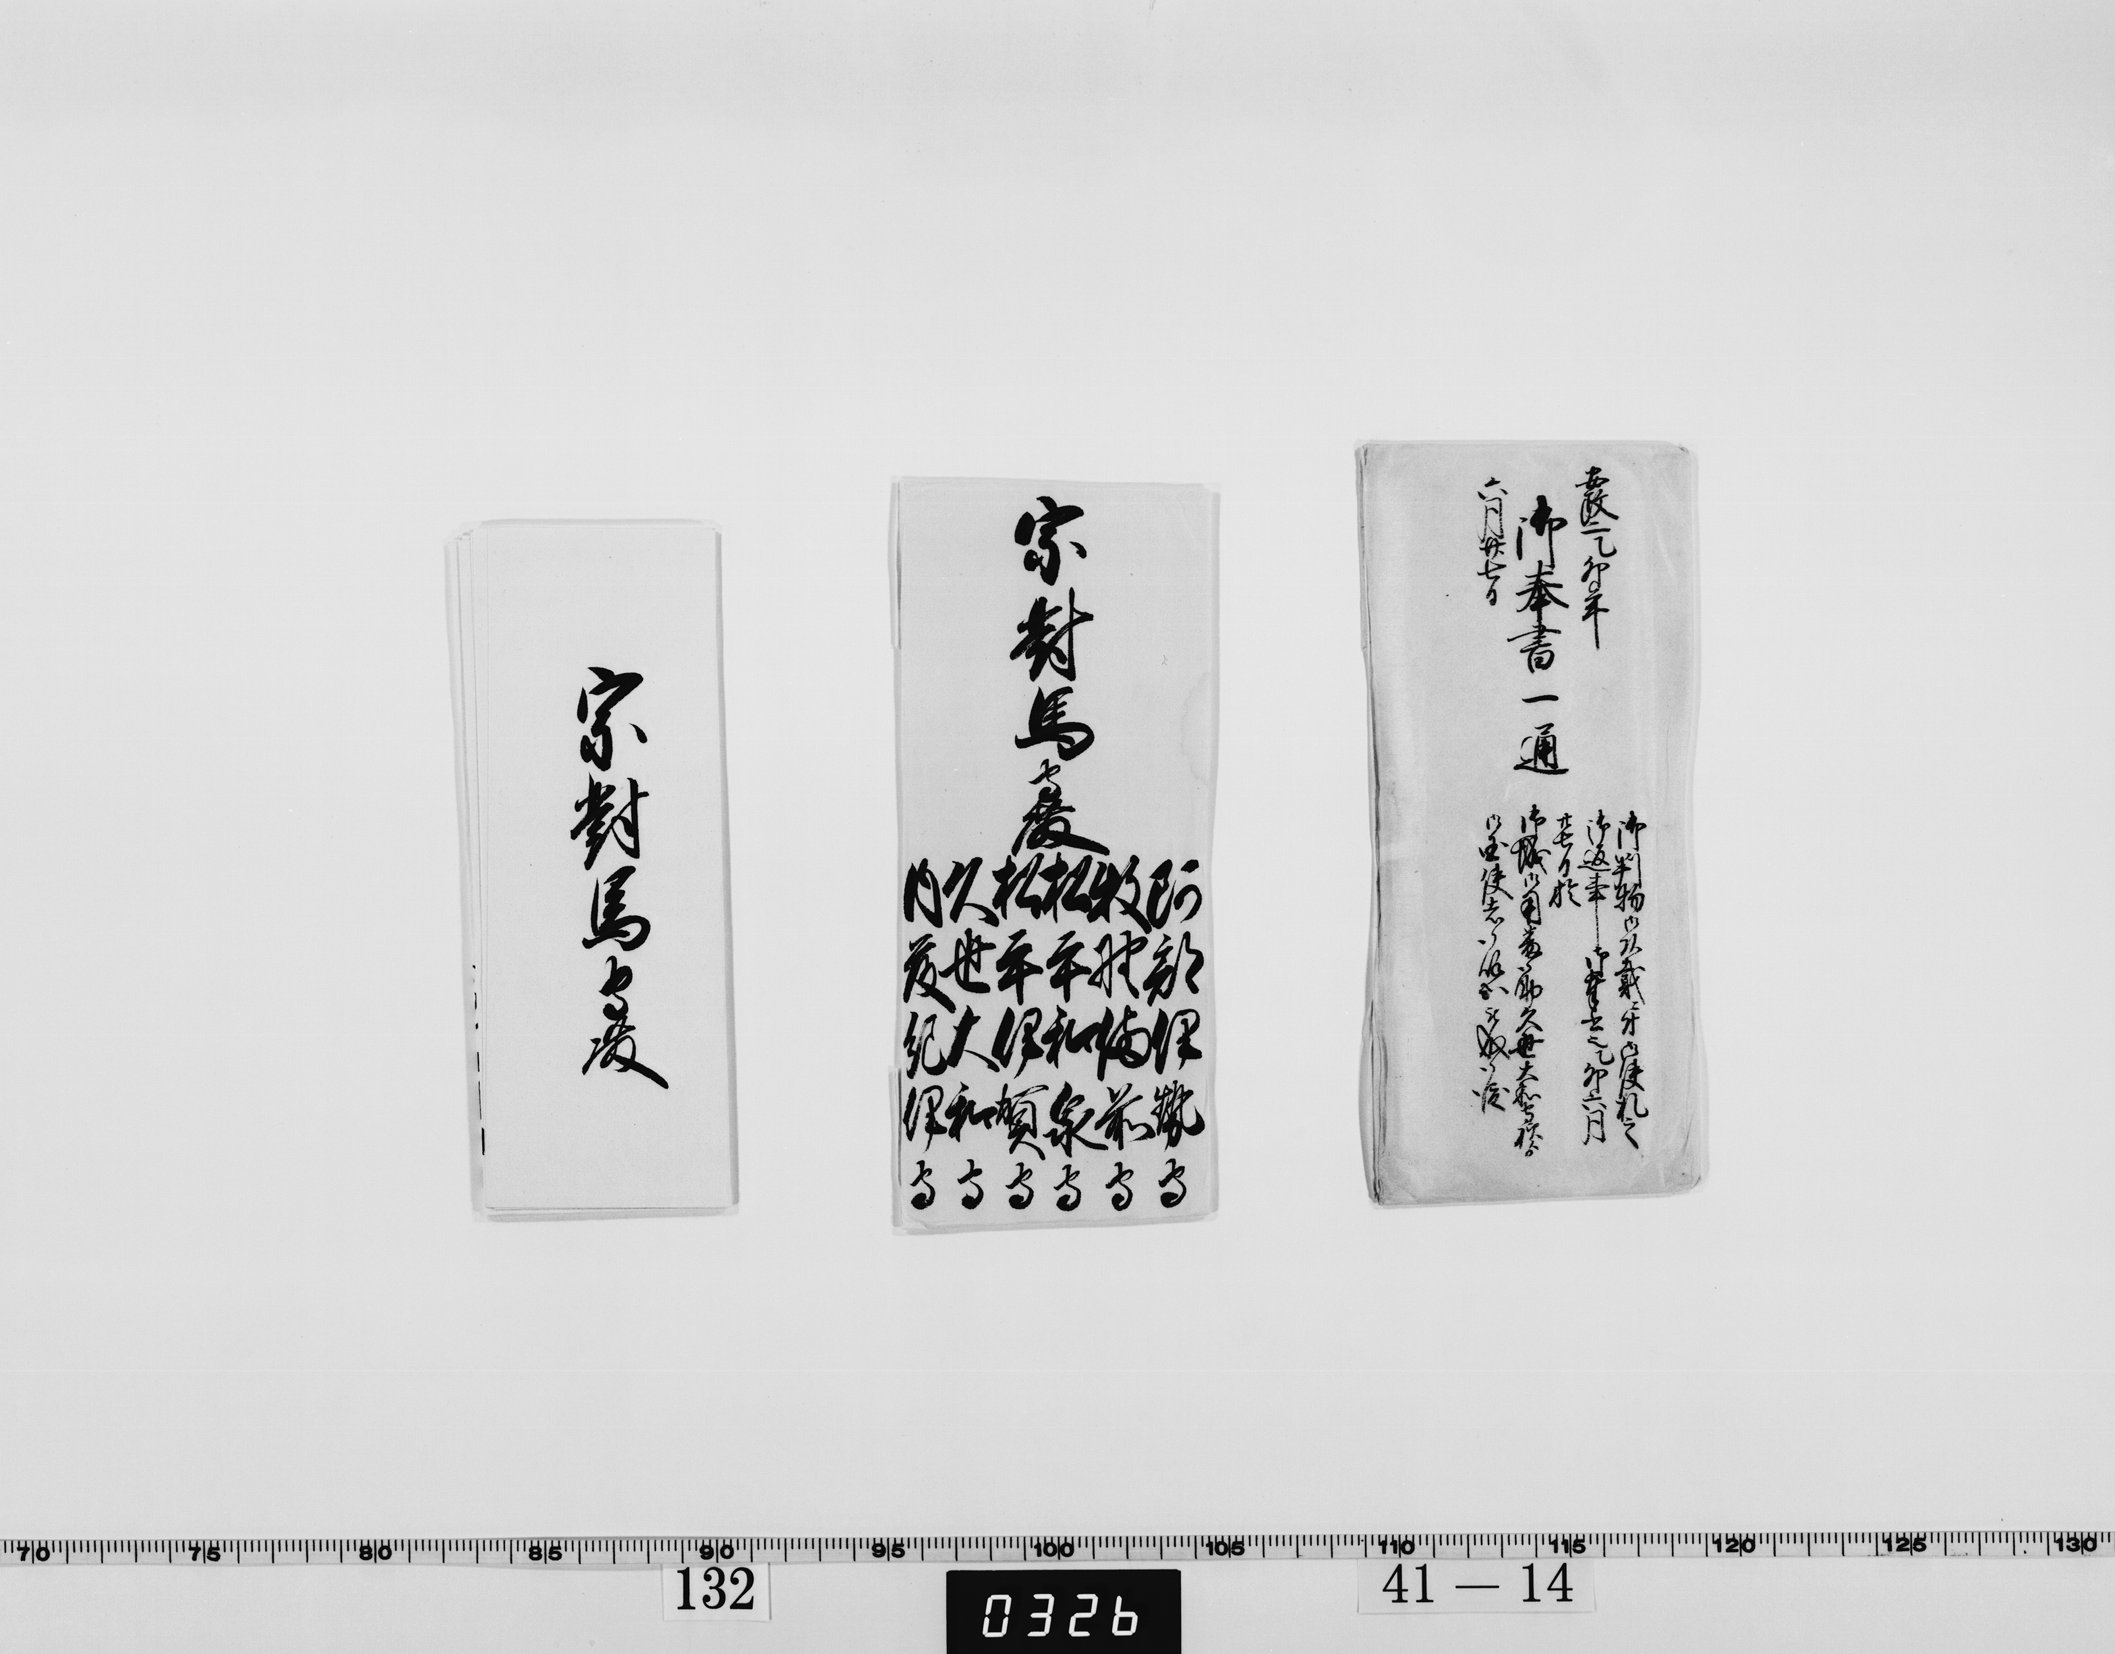 安政二乙卯年
御奉書一通
六月廿七日
御判物御頂戴ニ付御使札之
御返事御奉書乙卯六月
廿七日於
御城御用番久世大和守様
宗對馬守殿
阿部伊勢守
牧野備前守
松平和泉守
松平伊賀守
久世大和守
内藤紀伊守
宗對馬守殿
70 75 80 85 90 95 100 105 110 115 120 125 130
132
0326
41－14